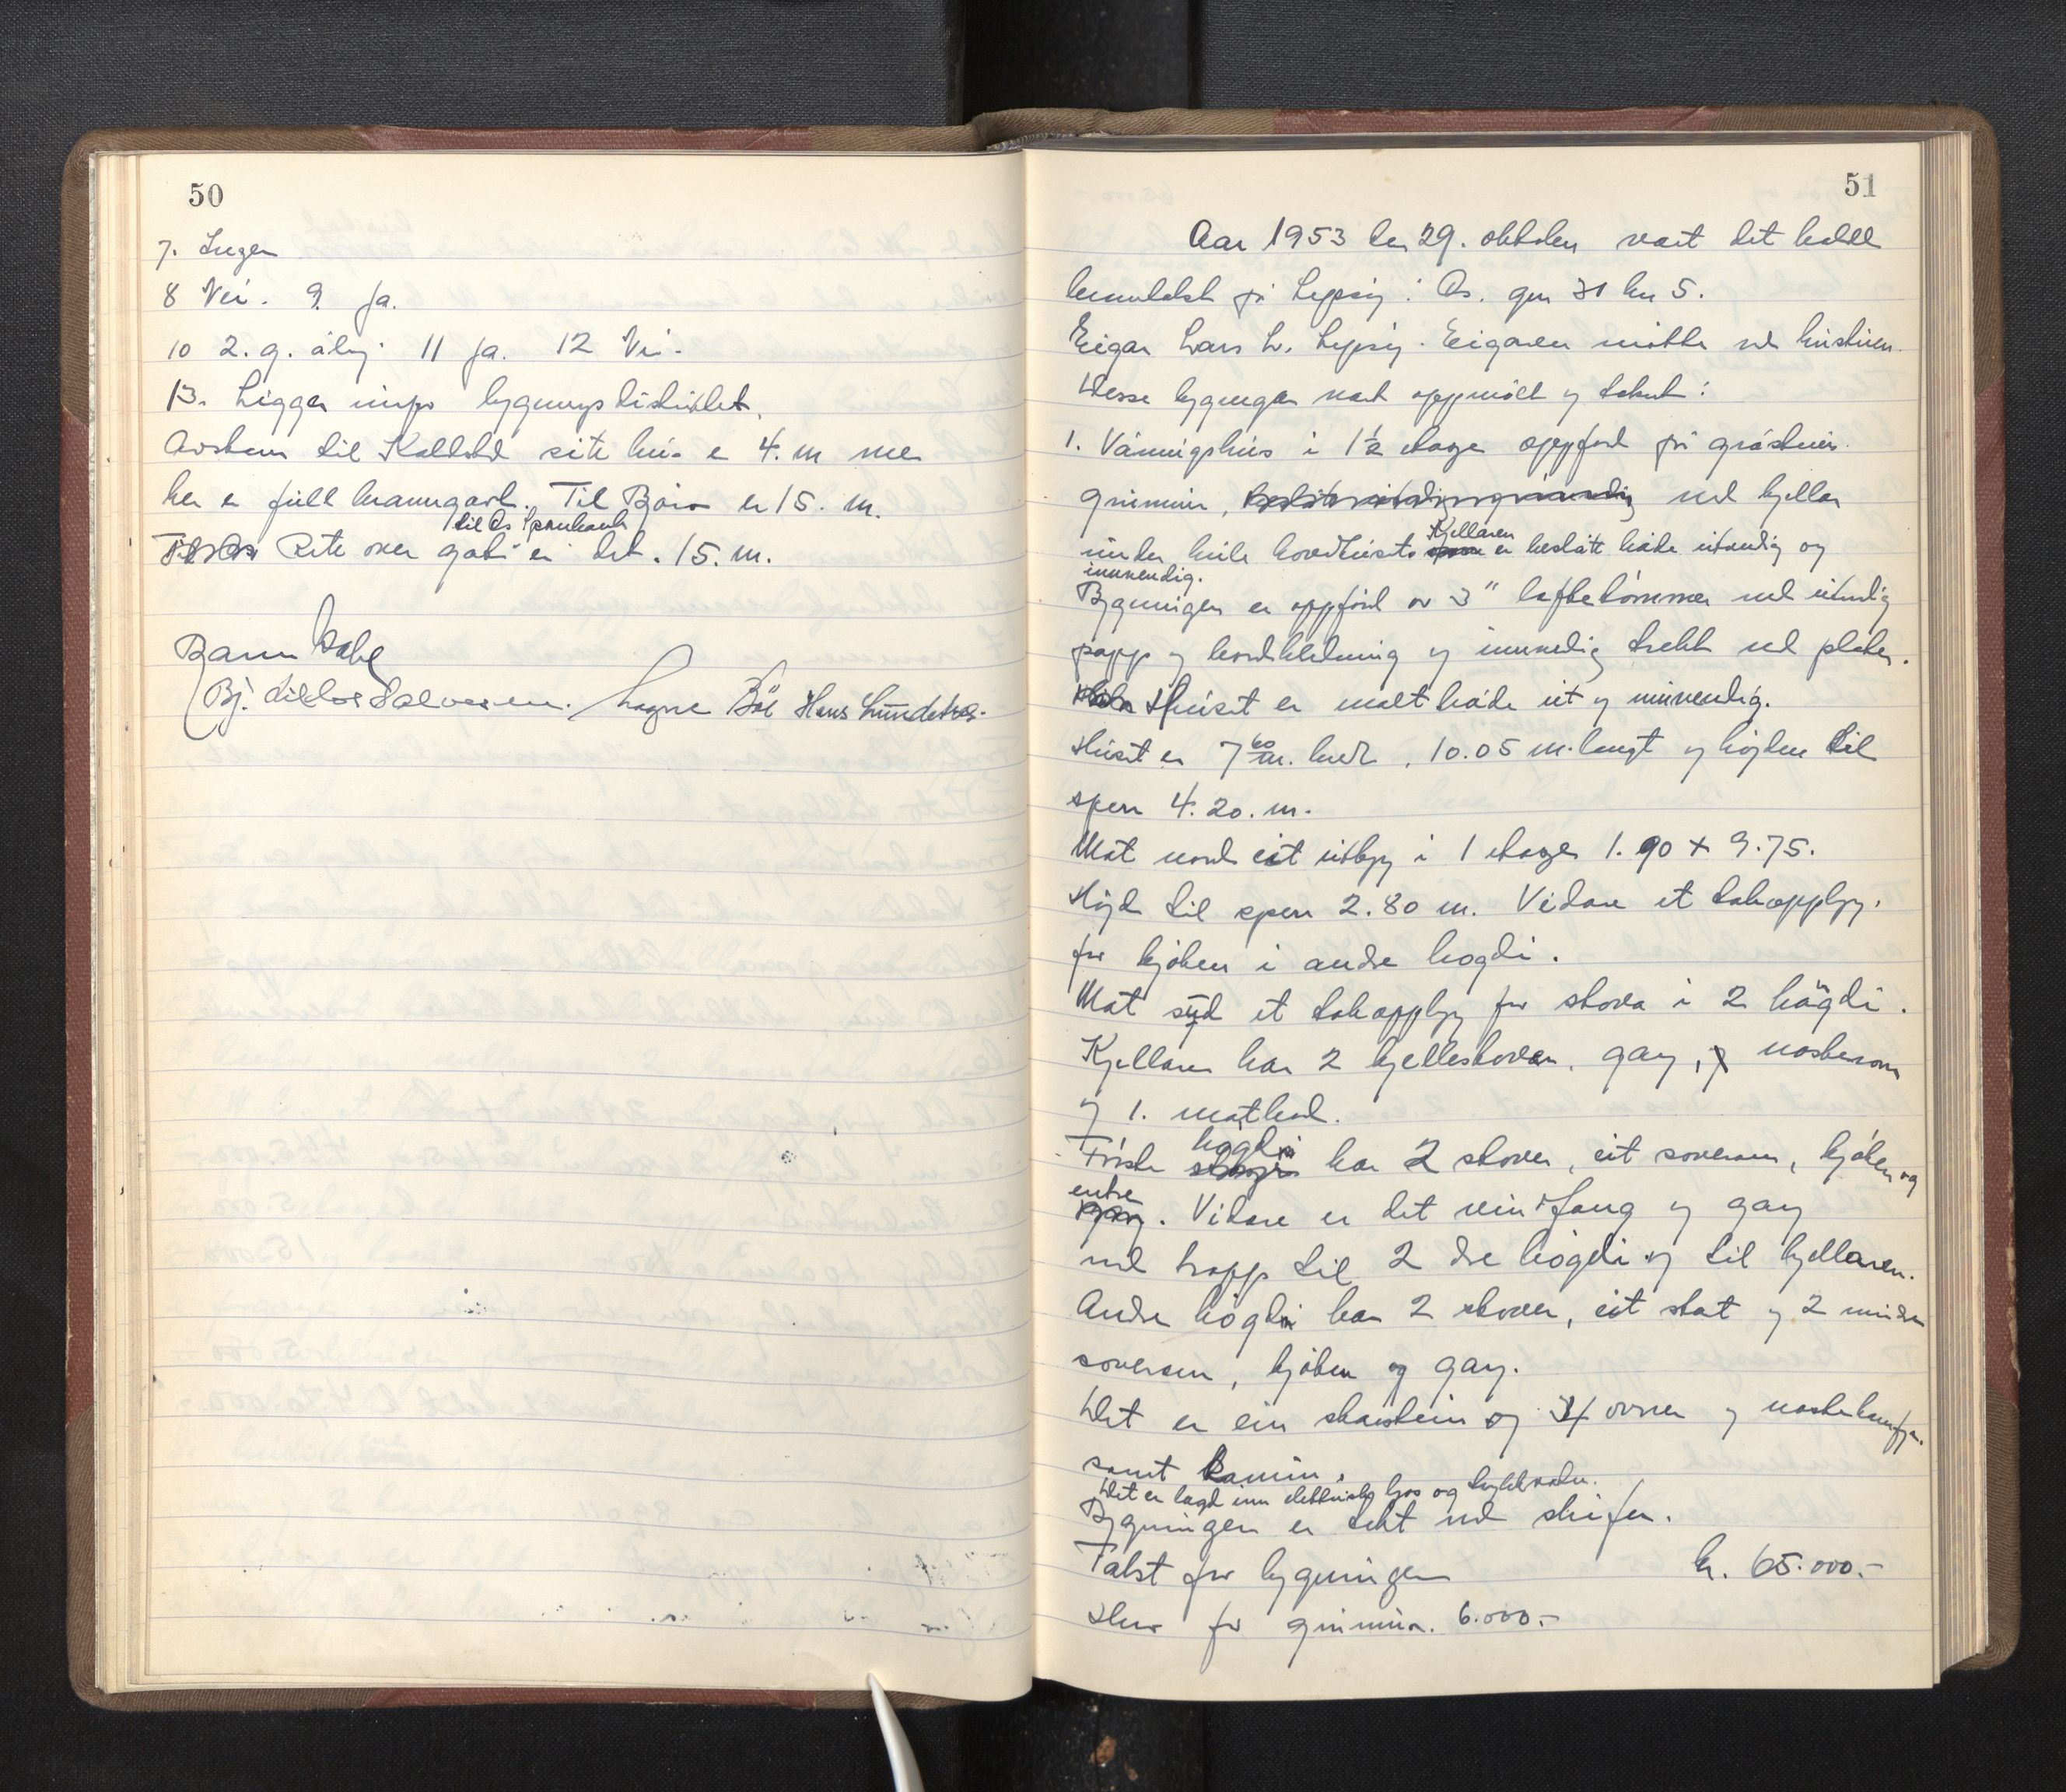 50
7. Ingen
8 Nei. 9. Ja.
10 2. g. årleg. 11 Ja. 12 Nei.
13. Ligger i bygningsdistriktet.
Avstann til Kalletd sitt hus e 4. m men
her e full branngavl. Til Bjøro er 15. m.
til Os Sparebank
Rett over gata er det. 15. m.
Dahl
Bj. Salvesen. Magne Bøe Hans Lundetræ.
51
Aar 1953 den 29. oktober vart det halde
branntakst på Lepsøy i Os. gnr 31 bnr 5.
Eigar Lars L. Lepsøy. Eigaren møtte ved hustruen.
Desse bygningar vart oppmålt og takserte:
1. Våningshus i 1½ etage oppført på gråsteins
grunnmur, med kjellar
under heile hovedhuset. Kjellaren er beslått både utvendig og
innvendig.
Bygningen er oppførd av 3" laftetømmer med utvendig
papp og bordkledning og innvendig trekt med plater.
Huset er malt både ut og innvendig.
Huset er 7 60/m. bredt, 10.05 m. langt og høgden til
sperr 4.20. m.
Mot nord eit utbyg i 1 etage 1.90 x 9.75.
Høgd til sperr 2.80 m. Vidare et takoppbyg.
for kjøken i andre høgdi.
Mot syd et takoppbyg for stova i 2 høgdi.
Kjellaren har 2 kjellerstover, gang, vaskerom
og 1. matbod.
Første høgdi har 2 stover, eit soverom, kjøken og
entre. Vidare er det vindfang og gang
med trapp til 2 dre høgdi og til kjellaren.
Andre høgdi har 2 stover, eit stort og 2 mindre
soverom, kjøken og gang.
Det er ein skorstein og 4 ovner og vaskekomfyr.
samt kamin.
Det er lagd inn elektrisk ljos og trykkvatn.
Bygningen er tekt med skifer.
Takst for bygningen kr. 65.000.-
Herav for grunnmur. 6.000.-